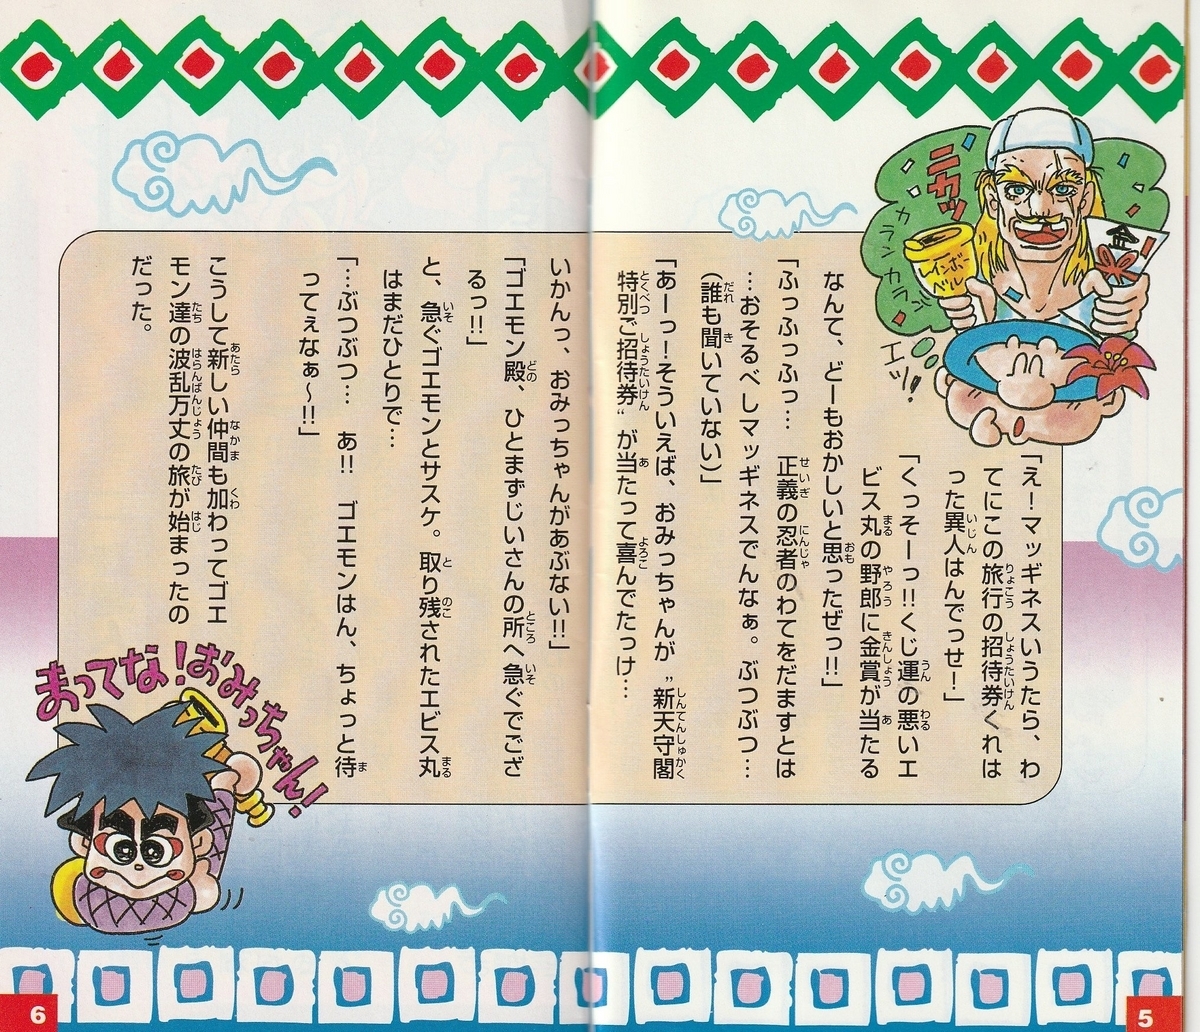 ニカッ
カランカラン
レインボーベル
金
エッ!
「え!マッギネスいうたら、わ
てにこの旅行の招待券くれは
った異人はんでっせ!」
「くっそーっ!!くじ運の悪いエ
ビス丸の野郎に金賞が当たる
なんて、どーもおかしいと思ったぜっ!!」
「ふっふっふっ… 正義の忍者のわてをだますとは
…おそるべしマッギネスでんなぁ。ぶつぶつ…
(誰も聞いていない)」
「あーっ!そういえば、おみっちゃんが〝新天守閣
特別ご招待券〟が当たって喜んでたっけ…
いかんっ、おみっちゃんがあぶない!!」
「ゴエモン殿、ひとまずじいさんの所へ急ぐでござ
るっ!!」
と、急ぐゴエモンとサスケ。取り残されたエビス丸
はまだひとりで…
「…ぶつぶつ… あ!! ゴエモンはん、ちょっと待
ってぇなぁ〜!!」
こうして新しい仲間も加わってゴエ
モン達の波乱万丈の旅が始まったの
だった。
まってな!おみっちゃん!
6
5